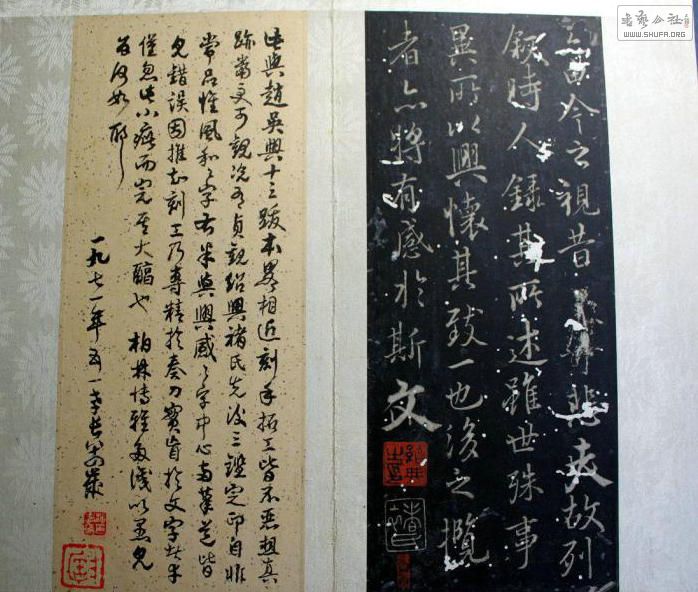 由今之視昔悲夫故列
叙時人錄其所述雖世殊事
異所以興懷其致一也後之攬
者亦將有感於斯文
此與趙吳興十三跋本略相近刻手拓工皆不惡想真
跡當更可觀況有貞觀紹興褚氏先後三鑑定印自非
常品惟風和之字右半與興感之字中心兩筆皆
見錯誤因推知刻工乃專精於奏刀實盲於文字
小疵而完其大醇也柏林博雅
為何如耶
一九七一年五一
书艺公社
WWW.SHUFA.ORG